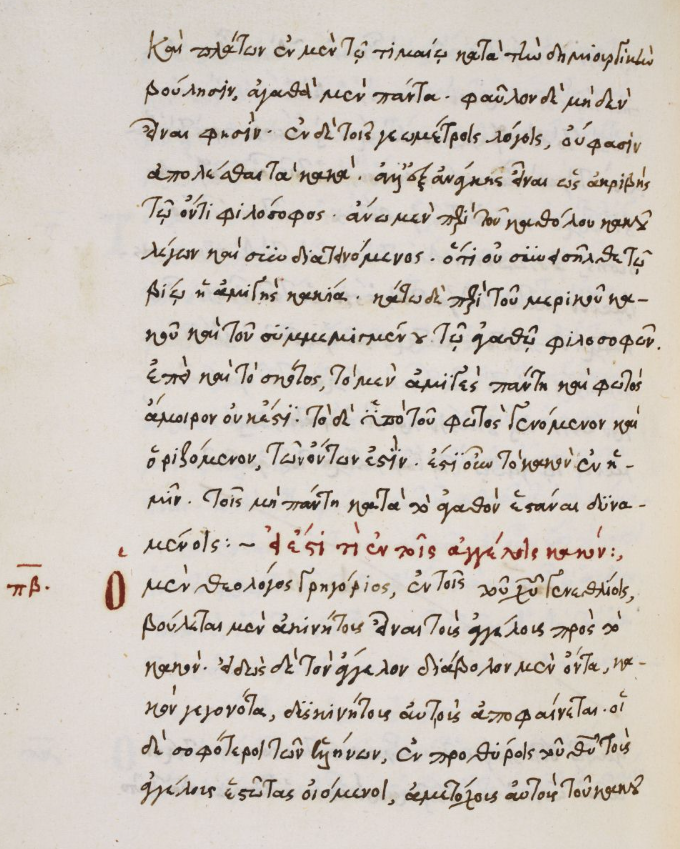 Καὶ πλάτων ἐν μὲν τῷ τιμαίῳ κατὰ τὴν δημιουργικὴν
βούλησιν, ἀγαθὰ μὲν πάντα· φαῦλον δὲ μηδὲν
εἶναι φησὶν· ἐν δὲ τοῖς γεωμέτροις λόγοις, οὔ φασὶν
ἀπολέσθαι τὰ κακὰ· ἀλλ' ἐξ ἀνάγκης εἶναι ὡς ἀκριβὴς
τῷ ὄντι φιλόσοφος· ἄνω μὲν περὶ τοῦ καθόλου κακοῦ
λέγων καὶ συνδιατεινόμενος· ὅτι οὐ συνεισῆλθε τῷ
βίῳ ἡ ἀμιγὴς κακία· κάτω δὲ περὶ τοῦ μερικοῦ κα-
κοῦ καὶ τοῦ συμμεμιγμένου τῷ ἀγαθῷ φιλοσοφῶν.
ἐπεὶ καὶ τὸ σκότος, τὸ μὲν ἀμιγὲς πάντη καὶ φωτὸς
ἄμοιρον οὐκ ἔστι· τὸ δὲ ὑπὸ τοῦ φωτὸς γενόμενον καὶ
ὁριζόμενον, τῶν ὄντων ἐστὶν· ἔστιν οὖν τὸ κακὸν ἐν ἡ-
μῖν· τοῖς μὴ πάντη κατὰ τὸ ἀγαθὸν ἑστάναι δυνα-
μένοις: ~ εἰ ἔστι τὶ ἐν τοῖς ἀγγέλοις κακόν:,
πβ. Ὁ μὲν θεολόγος γρηγόριος, ἐν τοῖς τοῦ χυ γενεθλίοις,
βούλεται μὲν ἀκινήτους εἶναι τοὺς ἀγγέλους πρὸς τὸ
κακὸν· εἰδὼς δὲ τὸν ἄγγελον διάβολον μὲν ὄντα, κα-
κὸν γεγονότα, δυσκινήτους αὐτοὺς ἀποφαίνεται· οἱ
δὲ σοφότεροι τῶν ἑλλήνων, ἐν προθύροις τοῦ θυ τοὺς
ἀγγέλους ἑστῶτας οἰόμενοι, ἀμετόχους αὐτοὺς τοῦ κακοῦ